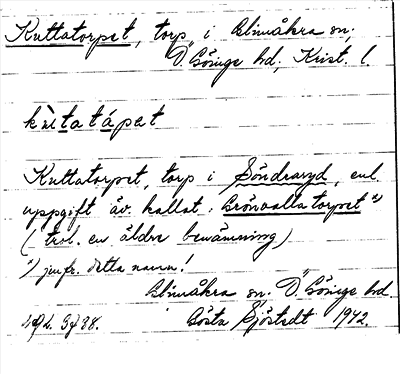 Kuttatorpet, torp i Glimåkra sn,
Ö. Göinge hd, Krist. l.
kùtatápat
Kuttatorpet, torp i Söndraryd, enl.
uppgift äv. kallat Grönvallatorpet *)
( trol. en äldre benämning)
*) jmfr. detta namn!
Glimåkra sn. Ö. Göinge hd
Gösta Sjöstedt 1942.